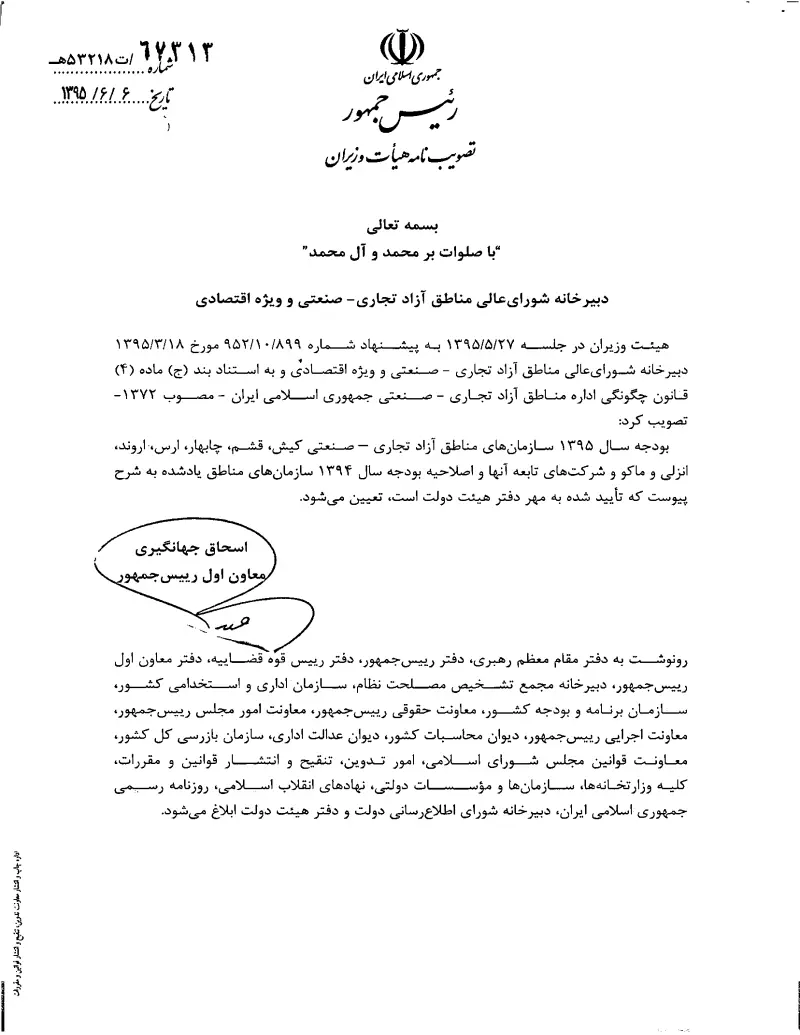 شماره ۶۷۳۱۳/ت۵۳۲۱۸هـ
تاریخ ۱۳۹۵/۶/۶
جمهوری اسلامی ایران
رئیس جمهور
تصویب نامه هیأت وزیران
بسمه تعالی
"با صلوات بر محمد و آل محمد"
دبیرخانه شورای‌عالی مناطق آزاد تجاری- صنعتی و ویژه اقتصادی
هیئت وزیران در جلسه ۱۳۹۵/۵/۲۷ به پیشنهاد شماره ۹۵۲/۱۰/۸۹۹ مورخ ۱۳۹۵/۳/۱۸
دبیرخانه شورای‌عالی مناطق آزاد تجاری - صنعتی و ویژه اقتصادی و به استناد بند (ج) ماده (۴)
قانون چگونگی اداره مناطق آزاد تجاری - صنعتی جمهوری اسلامی ایران - مصوب ۱۳۷۲-
تصویب کرد:
بودجه سال ۱۳۹۵ سازمان‌های مناطق آزاد تجاری – صنعتی کیش، قشم، چابهار، ارس، اروند،
انزلی و ماکو و شرکت‌های تابعه آنها و اصلاحیه بودجه سال ۱۳۹۴ سازمان‌های مناطق یادشده به شرح
پیوست که تأیید شده به مهر دفتر هیئت دولت است، تعیین می‌شود.
اسحاق جهانگیری
معاون اول رییس‌جمهور
رونوشت به دفتر مقام معظم رهبری، دفتر رییس‌جمهور، دفتر رییس قوه قضاییه، دفتر معاون اول
رییس‌جمهور، دبیرخانه مجمع تشخیص مصلحت نظام، سازمان اداری و استخدامی کشور،
سازمان برنامه و بودجه کشور، معاونت حقوقی رییس‌جمهور، معاونت امور مجلس رییس‌جمهور،
معاونت اجرایی رییس‌جمهور، دیوان محاسبات کشور، دیوان عدالت اداری، سازمان بازرسی کل کشور،
معاونت قوانین مجلس شورای اسلامی، امور تدوین، تنقیح و انتشار قوانین و مقررات،
کلیه وزارتخانه‌ها، سازمان‌ها و مؤسسات دولتی، نهادهای انقلاب اسلامی، روزنامه رسمی
جمهوری اسلامی ایران، دبیرخانه شورای اطلاع‌رسانی دولت و دفتر هیئت دولت ابلاغ می‌شود.
اداره چاپ و انتشار معاونت تدوین، تنقیح و انتشار قوانین و مقررات